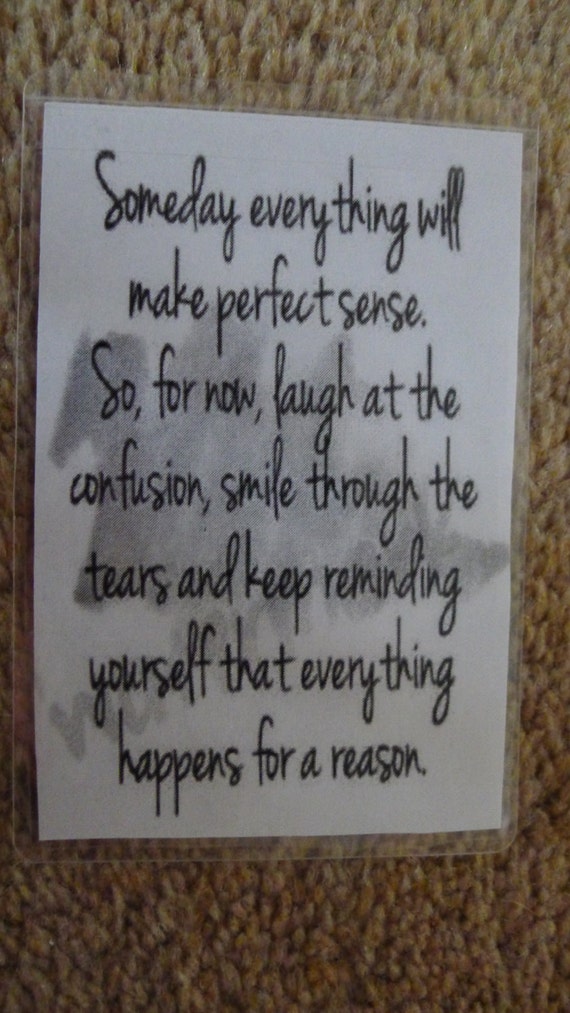 Someday everything will
make perfect sense.
So, for now, laugh at the
confusion, smile through the
tears and keep reminding
yourself that everything
happens for a reason.